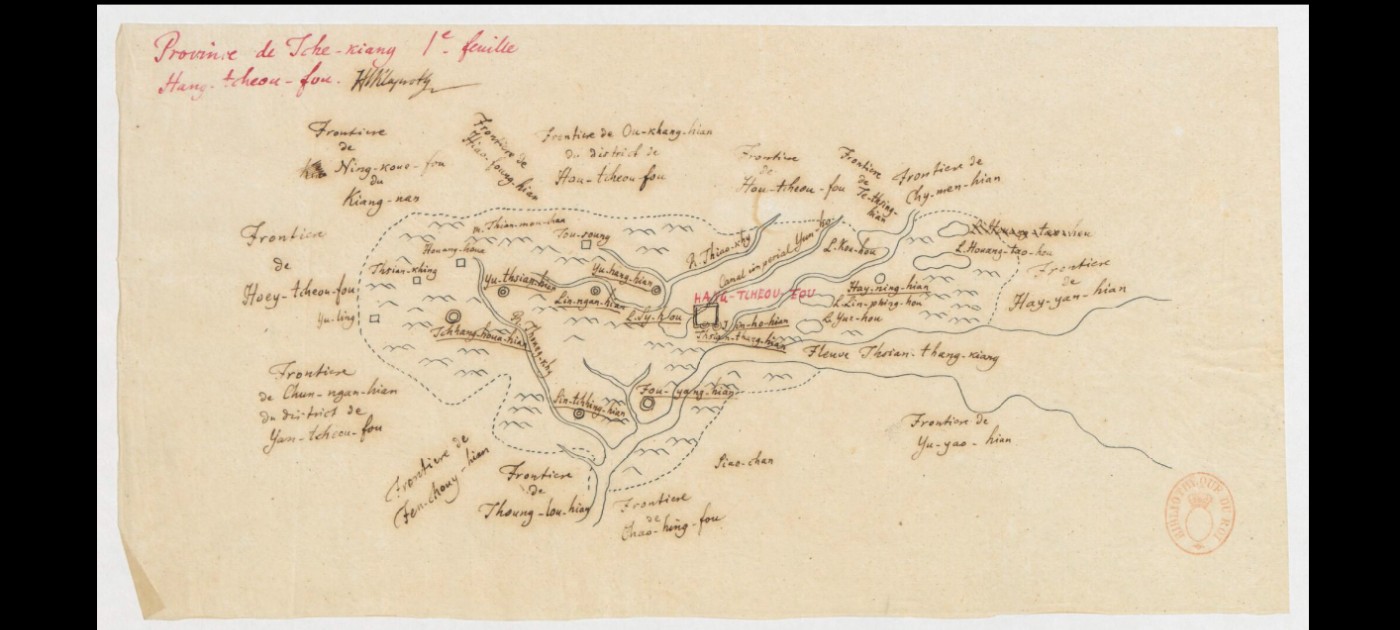 Province de Tche-kiang 1e. feuille
Hang-tcheou-fou.
Frontiere
de
Ning-koue-fou
du
Kiang-nan
Frontiere de
Hiao-foung-hian
Frontiere de Ou-khang-hian
du district de
Hou-tcheou fou
Frontiere
de
Hou-tcheou-fou
Frontiere
de
Te-thsing-
hian
Frontiere de
Chy-men-hian
Frontiere
de
Hoey-tcheou-fou
m. Thian-mou-chan
Houang-houa
Tou-soung
Thsian-khing
Yu-ling
Yu-thsian-hian
Yu-hang-hian
Lin-ngan-hian
Tchhang-houa-hian
R. Thiao-khy
Canal imperial Yun-ho
L. Kou-hou
L. Houang-tao-hou
Frontiere
de
Hay-yan-hian
Hay-ning-hian
L. Lin-phing-hou
L. Yue-hou
L. Sy-hou
HANG-TCHEOU-FOU
Jin-ho-hian
Thsian-thang-hian
Fleuve Thsian-thang-kiang
Fou-yang-hian
Sin-tchhing-hian
Frontiere
de Chun-ngan-hian
du district de
Yan-tcheou-fou
Frontiere de
Fen-chouy-hian
Frontiere
de
Thoung-lou-hian
Frontiere
de
Chao-hing-fou
Siao-chan
Frontiere de
Yu-yao-hian
BIBLIOTHEQUE DU ROI